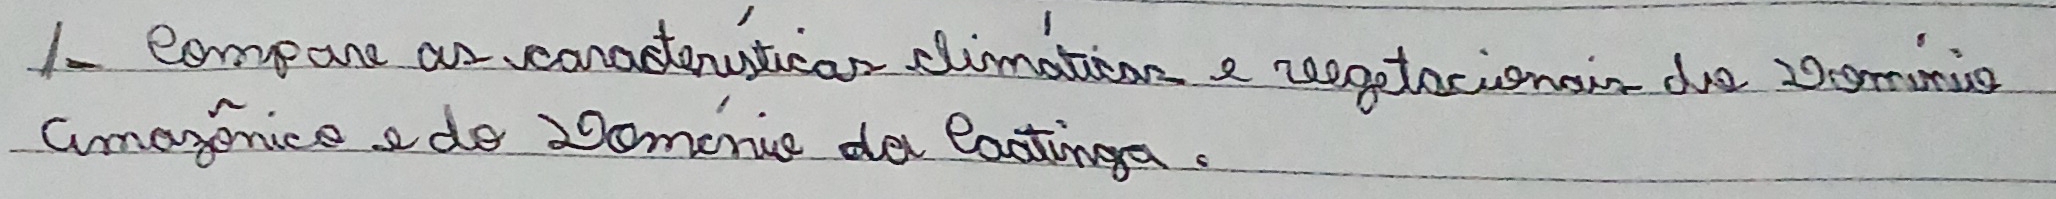 1- Compare as características climáticas e vegetacionais do Domínio
Amazônico e do Domínio da Caatinga.